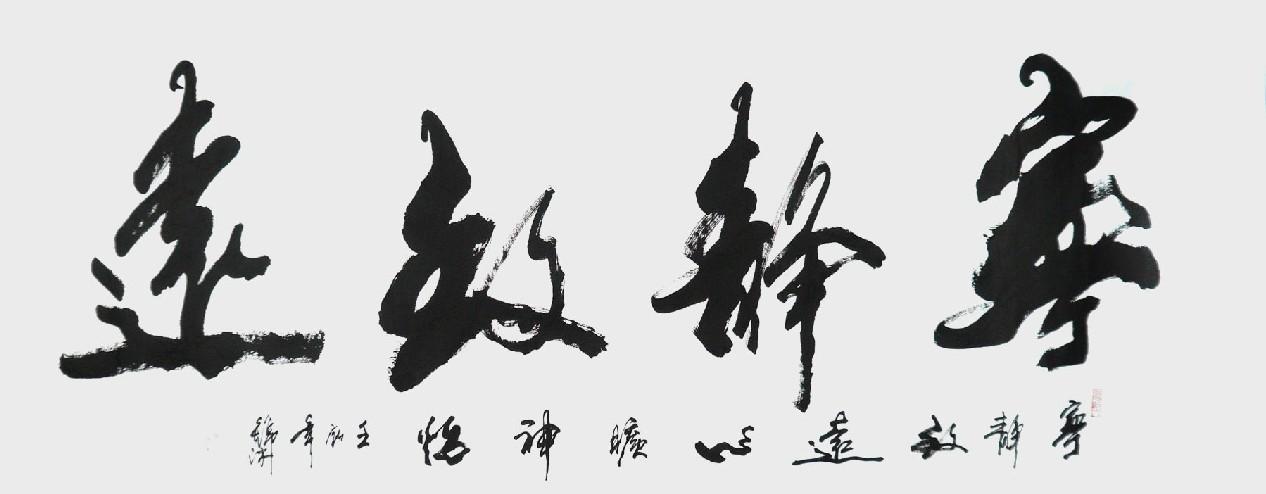 寧靜致遠
寧靜致遠心曠神怡壬辰年